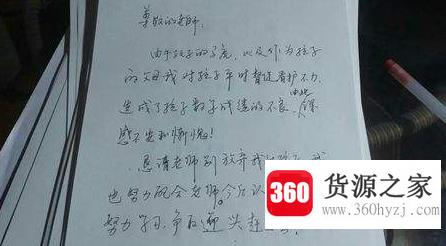 尊敬的老师,
由于孩子的  ,以及作为孩子
的父母我对孩子平时督促看护不力,
造成了孩子数学成绩的不良,由此 深
感不安和惭愧!
恳请老师别放弃我
也努力配合老师,今后
努力学习,争取迎头赶
360
货源之家
www.360hyzj.com